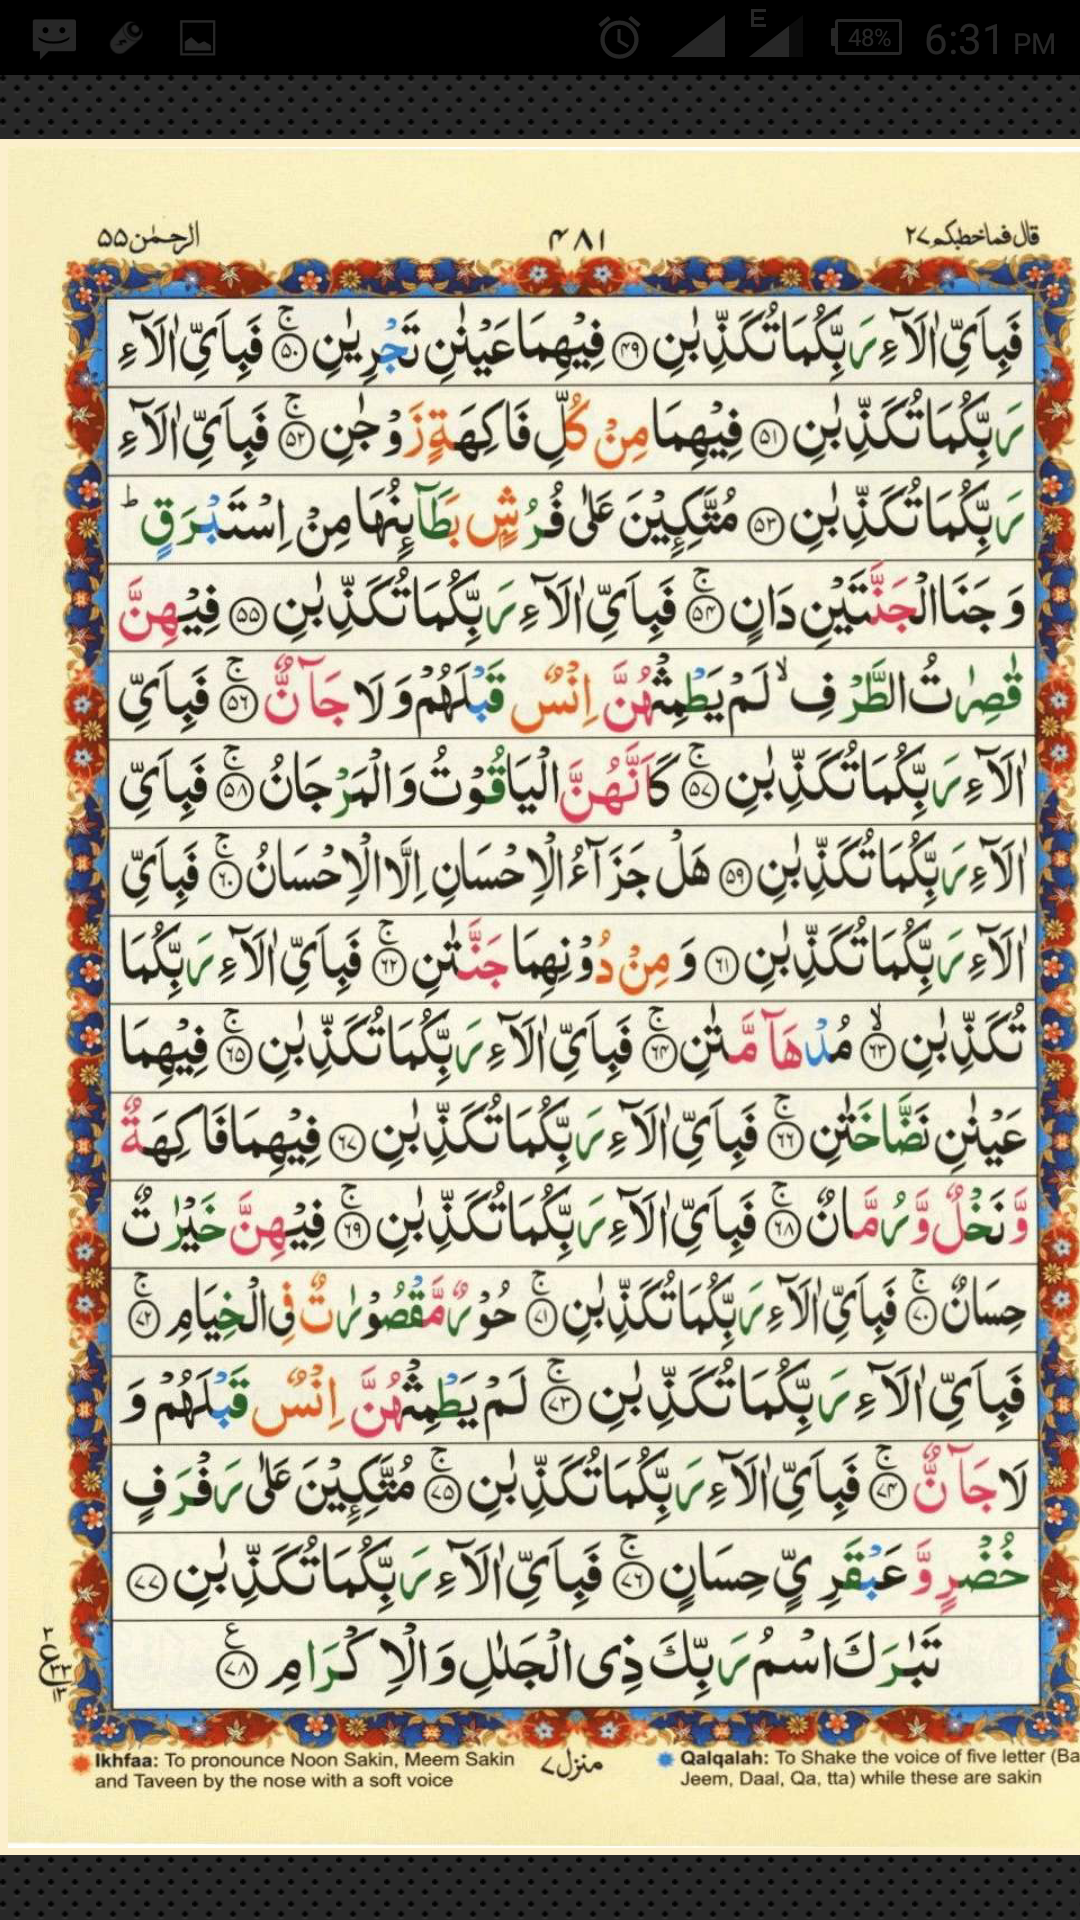 48% 6:31 PM
E
الرحمٰن ۵۵ ۴۸۱ قال فماخطبکم ۲۷
فَبِاَىِّ اٰلَآءِ رَبِّكُمَا تُكَذِّبٰنِ ۴۹ فِيْهِمَا عَيْنٰنِ تَجْرِيٰنِ ۚ ۵۰ فَبِاَىِّ اٰلَآءِ
رَبِّكُمَا تُكَذِّبٰنِ ۵۱ فِيْهِمَا مِنْ كُلِّ فَاكِهَةٍ زَوْجٰنِ ۚ ۵۲ فَبِاَىِّ اٰلَآءِ
رَبِّكُمَا تُكَذِّبٰنِ ۵۳ مُتَّكِـِٕيْنَ عَلٰى فُرُشٍۭ بَطَآٮِٕنُهَا مِنْ اِسْتَبْرَقٍ ؕ
وَ جَنَا الْجَنَّتَيْنِ دَانٍ ۚ ۵۴ فَبِاَىِّ اٰلَآءِ رَبِّكُمَا تُكَذِّبٰنِ ۵۵ فِيْهِنَّ
قٰصِرٰتُ الطَّرْفِ ۙ لَمْ يَطْمِثْهُنَّ اِنْسٌ قَبْلَهُمْ وَ لَا جَآنٌّ ۚ ۵۶ فَبِاَىِّ
اٰلَآءِ رَبِّكُمَا تُكَذِّبٰنِ ۚ ۵۷ كَاَنَّهُنَّ الْيَاقُوْتُ وَ الْمَرْجَانُ ۚ ۵۸ فَبِاَىِّ
اٰلَآءِ رَبِّكُمَا تُكَذِّبٰنِ ۵۹ هَلْ جَزَآءُ الْاِحْسَانِ اِلَّا الْاِحْسَانُ ۚ ۶۰ فَبِاَىِّ
اٰلَآءِ رَبِّكُمَا تُكَذِّبٰنِ ۶۱ وَ مِنْ دُوْنِهِمَا جَنَّتٰنِ ۚ ۶۲ فَبِاَىِّ اٰلَآءِ رَبِّكُمَا
تُكَذِّبٰنِ ۙ ۶۳ مُدْهَآمَّتٰنِ ۚ ۶۴ فَبِاَىِّ اٰلَآءِ رَبِّكُمَا تُكَذِّبٰنِ ۚ ۶۵ فِيْهِمَا
عَيْنٰنِ نَضَّاخَتٰنِ ۚ ۶۶ فَبِاَىِّ اٰلَآءِ رَبِّكُمَا تُكَذِّبٰنِ ۶۷ فِيْهِمَا فَاكِهَةٌ
وَّ نَخْلٌ وَّ رُمَّانٌ ۚ ۶۸ فَبِاَىِّ اٰلَآءِ رَبِّكُمَا تُكَذِّبٰنِ ۚ ۶۹ فِيْهِنَّ خَيْرٰتٌ
حِسَانٌ ۚ ۷۰ فَبِاَىِّ اٰلَآءِ رَبِّكُمَا تُكَذِّبٰنِ ۚ ۷۱ حُوْرٌ مَّقْصُوْرٰتٌ فِى الْخِيَامِ ۚ ۷۲
فَبِاَىِّ اٰلَآءِ رَبِّكُمَا تُكَذِّبٰنِ ۚ ۷۳ لَمْ يَطْمِثْهُنَّ اِنْسٌ قَبْلَهُمْ وَ
لَا جَآنٌّ ۚ ۷۴ فَبِاَىِّ اٰلَآءِ رَبِّكُمَا تُكَذِّبٰنِ ۚ ۷۵ مُتَّكِـِٕيْنَ عَلٰى رَفْرَفٍ
خُضْرٍ وَّ عَبْقَرِىٍّ حِسَانٍ ۚ ۷۶ فَبِاَىِّ اٰلَآءِ رَبِّكُمَا تُكَذِّبٰنِ ۷۷
تَبٰرَكَ اسْمُ رَبِّكَ ذِى الْجَلٰلِ وَ الْاِكْرَامِ ۷۸ ع
۳ ع ۳۳ ۱۳
Ikhfaa: To pronounce Noon Sakin, Meem Sakin
and Taveen by the nose with a soft voice
منزل ۷
Qalqalah: To Shake the voice of five letter (Ba
Jeem, Daal, Qa, tta) while these are sakin